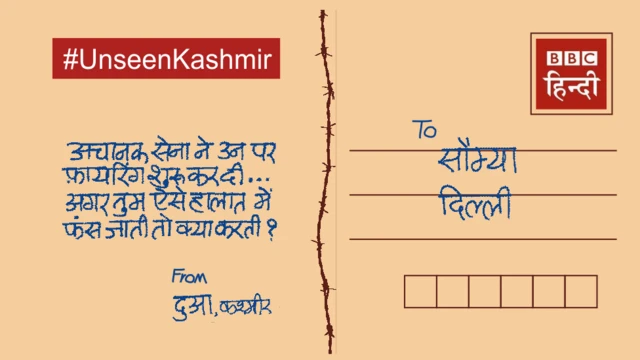 #UnseenKashmir
अचानक सेना ने उन पर
फ़ायरिंग शुरू कर दी...
अगर तुम ऐसे हालात में
फंस जाती तो क्या करती ?
From
दुआ, कश्मीर
BBC
हिन्दी
To
सौम्या
दिल्ली